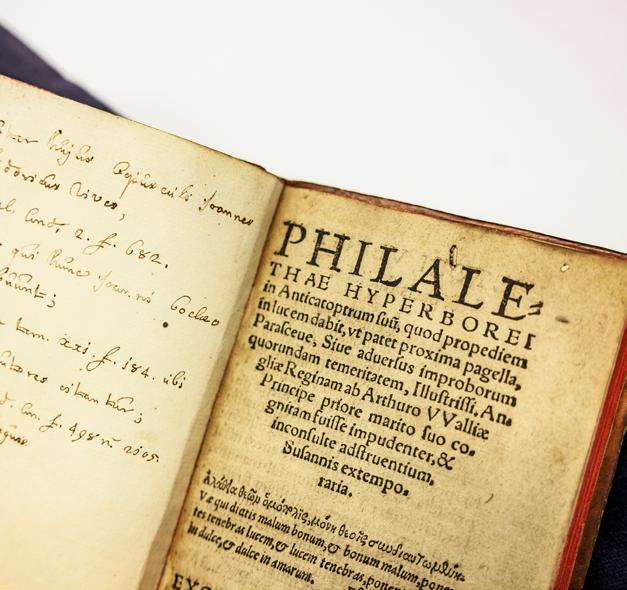 hujus Opusculi Joannes
Vives,
2. f. 682.
qui hunc Joanni Coclæo
tom. xxi. f. 184. ubi
citantur;
f. 498 n. 2105.
PHILALE-
THAE HYPERBOREI
in Anticatoptrum suũ, quod propediem
in lucem dabit, vt patet proxima pagella,
Parasceue, Siue aduersus improborum
quorundam temeritatem, Illustrissi, An-
gliæ Reginam ab Arthuro VValliæ
Principe priore marito suo co-
gnitam fuisse impudenter, &
inconsulte adstruentium,
Susannis extempo-
raria.
θεῶν θεοῖς
Væ qui diatis malum bonum, & bonum malum, ponen
tes tenebras lucem, & lucem tenebras, ponen
in dulce, & dulce in amarum.
EXC